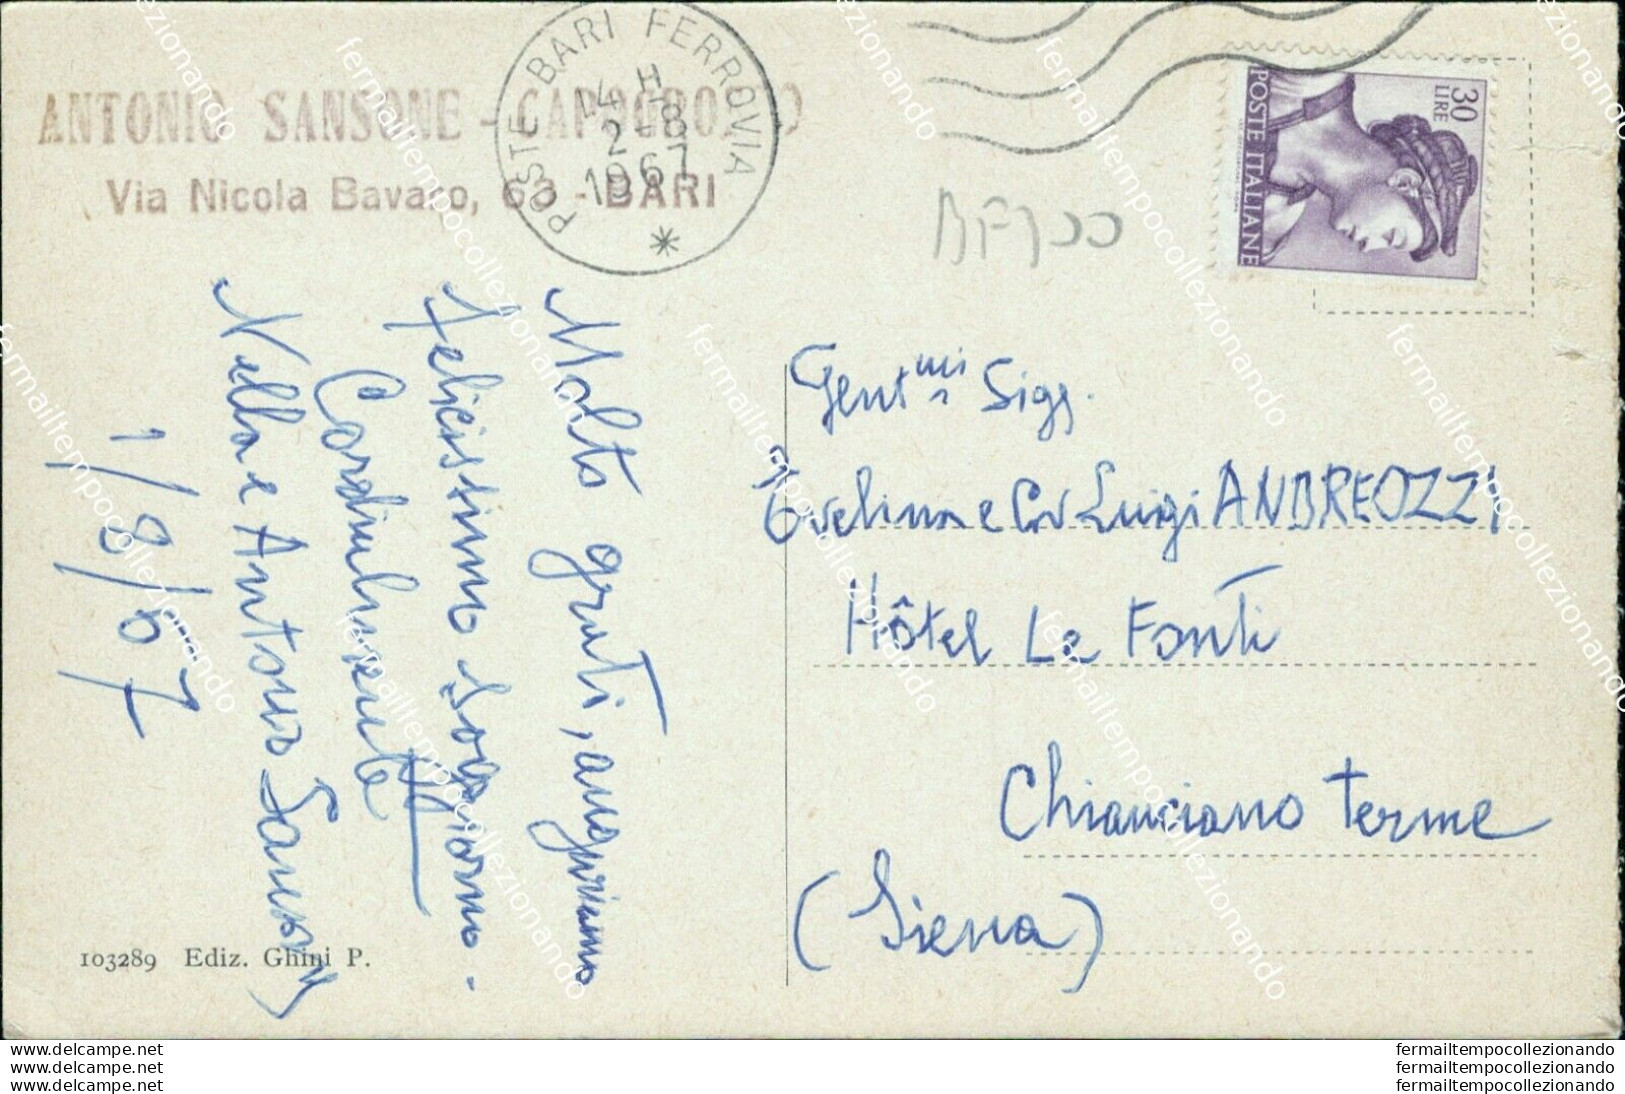 ANTONIO SANSONE -
Via Nicola Bavaro, 63 - BARI
POSTE BARI FERROVIA
14 H
2-8
1967
30 LIRE
POSTE ITALIANE
BF700
Molto grati, auguriamo
felicissimo soggiorno -
Cordialmente
Nella e Antonio Sansone
1/8/67
Gent.mi Sigg.
Evelina e Cav Luigi ANDREOZZI
Hôtel Le Fonti
Chianciano Terme
(Siena)
103289 Ediz. Ghini P.
www.delcampe.net
www.delcampe.net
www.delcampe.net
fermailtempocollezionando
fermailtempocollezionando
fermailtempocollezionando